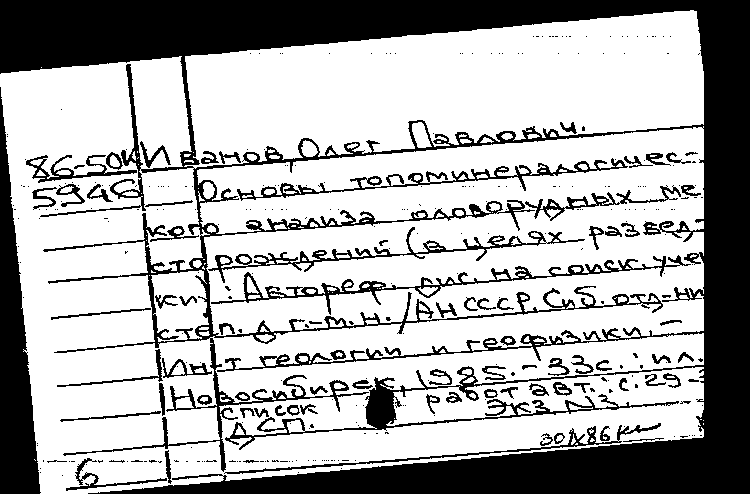 86-50К Иванов, Олег Павлович.
5946 Основы топоминералогичес-
кого анализа оловорудных ме
сторождений (в целях развед-
ки): Автореф. дис. на соиск. учен
степ. д.г.-м.н. / АН СССР. Сиб. отд-ни
Ин-т геологии и геофизики. -
Новосибирск, 1985. - 33с. : ил.
список работ авт.: с. 29-3
ДСП. Экз N3.
86 Кн
6